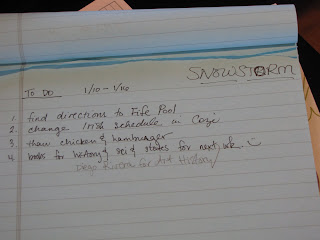 SNOWSTORM
To Do 1/10 - 1/16
1. find directions to Fife Pool
2. change schedule in Cozi
3. thaw chicken & hamburger
4. books for history & sci & states for next wk.
Diego Rivera for Art History